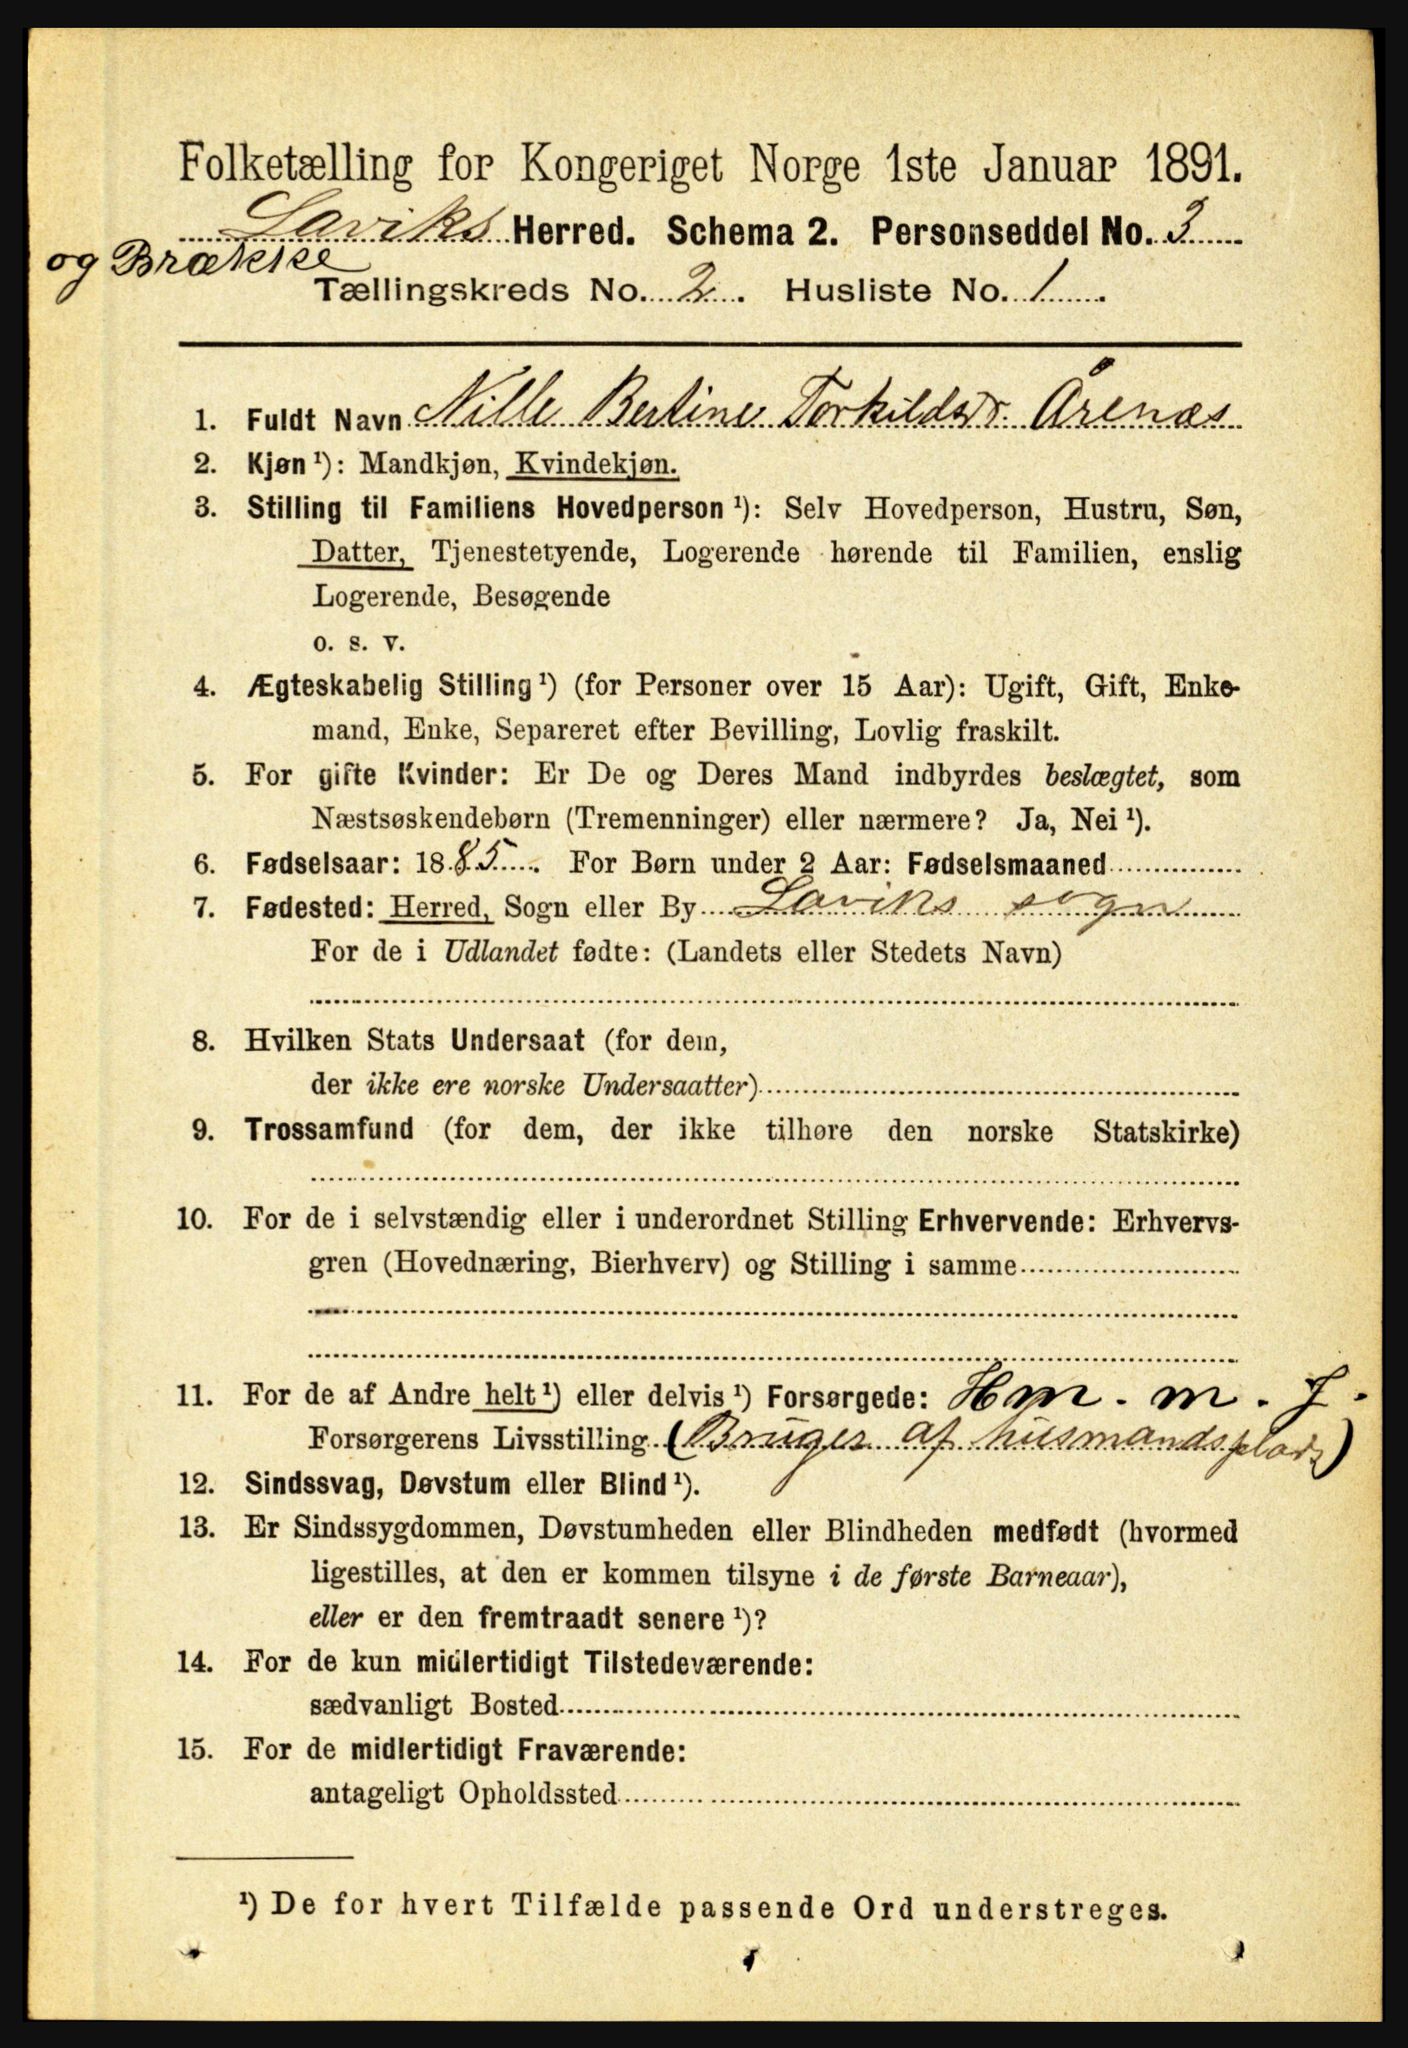 Folketælling for Kongeriget Norge 1ste Januar 1891.
Laviks Herred. Schema 2. Personseddel No. 3
og Brække
Tællingskreds No. 2. Husliste No. 1.
1. Fuldt Navn Nille Bertine Torkildsdr. Årenæs
2. Kjøn ¹): Mandkjøn, Kvindekjøn.
3. Stilling til Familiens Hovedperson ¹): Selv Hovedperson, Hustru, Søn,
Datter, Tjenestetyende, Logerende hørende til Familien, enslig
Logerende, Besøgende
o. s. v.
4. Ægteskabelig Stilling ¹) (for Personer over 15 Aar): Ugift, Gift, Enke-
mand, Enke, Separeret efter Bevilling, Lovlig fraskilt.
5. For gifte Kvinder: Er De og Deres Mand indbyrdes beslægtet, som
Næstsøskendebørn (Tremenninger) eller nærmere? Ja, Nei ¹).
6. Fødselsaar: 1885. For Børn under 2 Aar: Fødselsmaaned
7. Fødested: Herred, Sogn eller By Laviks sogn
For de i Udlandet fødte: (Landets eller Stedets Navn)
8. Hvilken Stats Undersaat (for dem,
der ikke ere norske Undersaatter)
9. Trossamfund (for dem, der ikke tilhøre den norske Statskirke)
10. For de i selvstændig eller i underordnet Stilling Erhvervende: Erhvervs-
gren (Hovednæring, Bierhverv) og Stilling i samme
11. For de af Andre helt ¹) eller delvis ¹) Forsørgede: Hm. m. J.
Forsørgerens Livsstilling (Bruger af husmandsplads)
12. Sindssvag, Døvstum eller Blind ¹).
13. Er Sindssygdommen, Døvstumheden eller Blindheden medfødt (hvormed
ligestilles, at den er kommen tilsyne i de første Barneaar),
eller er den fremtraadt senere ¹)?
14. For de kun midlertidigt Tilstedeværende:
sædvanligt Bosted
15. For de midlertidigt Fraværende:
antageligt Opholdssted
¹) De for hvert Tilfælde passende Ord understreges.